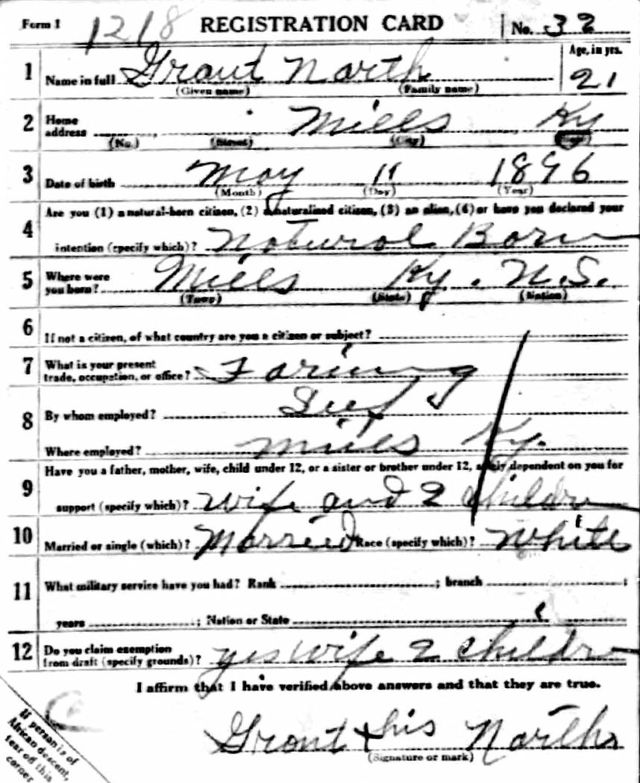 Form 1 1218 REGISTRATION CARD No. 32
1 Name in full Grant North Age, in yrs. 21
(Given name) (Family name)
2 Home address Mills Ky
(No.) (Street) (City)
3 Date of birth May 11 1896
(Month) (Day) (Year)
Are you (1) a natural-born citizen, (2) a naturalized citizen, (3) an alien, (4) or have you declared your
4 intention (specify which)? Natural Born
5 Where were you born? Mills Ky. U.S.
(Town) (State) (Nation)
6 If not a citizen, of what country are you a citizen or subject?
7 What is your present trade, occupation, or office? Farming
8 By whom employed? Self
Where employed? Mills Ky.
Have you a father, mother, wife, child under 12, or a sister or brother under 12, solely dependent on you for
9 support (specify which)? Wife and 2 children
10 Married or single (which)? Married Race (specify which)? White
11 What military service have you had? Rank ; branch ;
years ; Nation or State
12 Do you claim exemption from draft (specify grounds)? yes wife 2 children
I affirm that I have verified above answers and that they are true.
Grant his North
(Signature or mark)
If person is of
African descent,
tear off this
corner